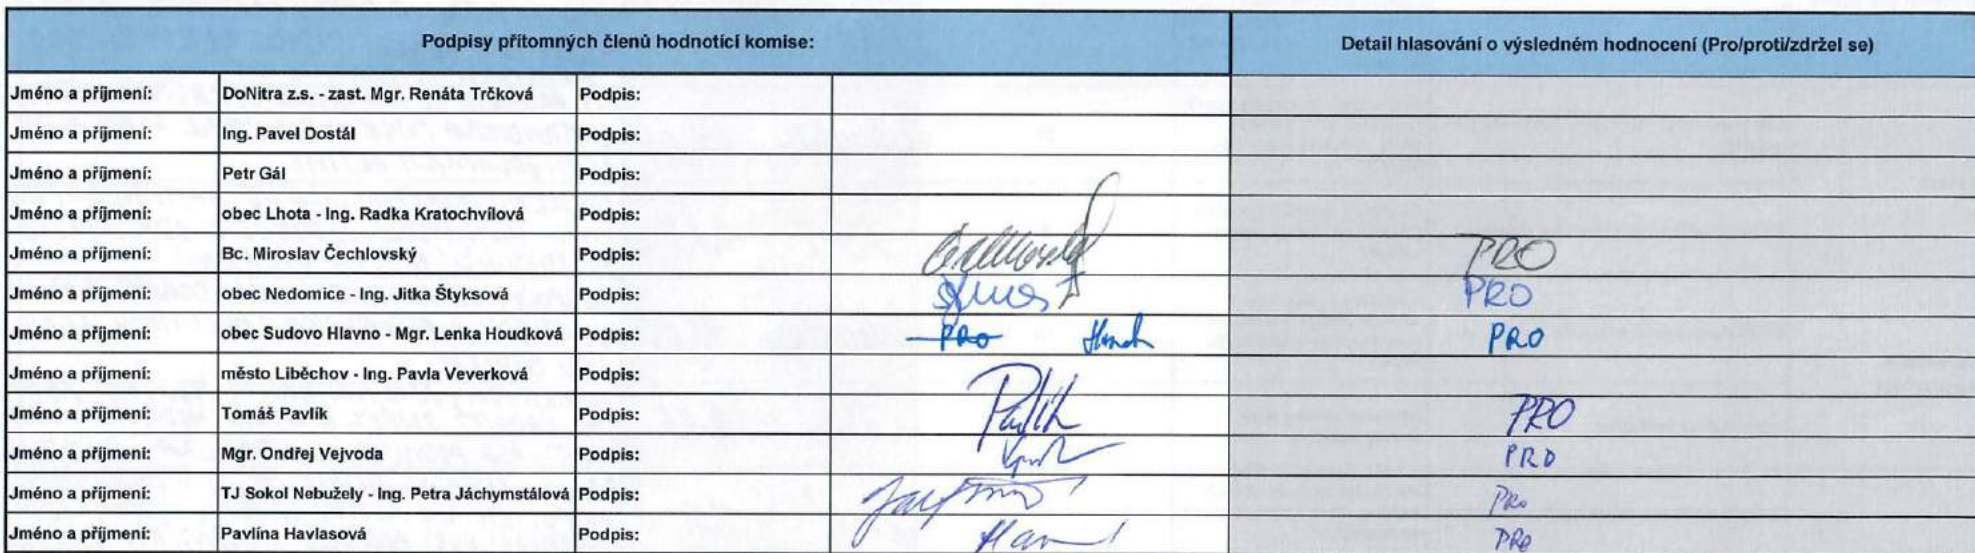 Podpisy přítomných členů hodnotící komise: Detail hlasování o výsledném hodnocení (Pro/proti/zdržel se)
Jméno a příjmení: DoNitra z.s. - zast. Mgr. Renáta Trčková Podpis:
Jméno a příjmení: Ing. Pavel Dostál Podpis:
Jméno a příjmení: Petr Gál Podpis:
Jméno a příjmení: obec Lhota - Ing. Radka Kratochvílová Podpis:
Jméno a příjmení: Bc. Miroslav Čechlovský Podpis: PRO
Jméno a příjmení: obec Nedomice - Ing. Jitka Štyksová Podpis: PRO
Jméno a příjmení: obec Sudovo Hlavno - Mgr. Lenka Houdková Podpis: PRO PRO
Jméno a příjmení: město Liběchov - Ing. Pavla Veverková Podpis:
Jméno a příjmení: Tomáš Pavlík Podpis: Pavlík PRO
Jméno a příjmení: Mgr. Ondřej Vejvoda Podpis: PRO
Jméno a příjmení: TJ Sokol Nebužely - Ing. Petra Jáchymstálová Podpis: PRO
Jméno a příjmení: Pavlína Havlasová Podpis: PRO